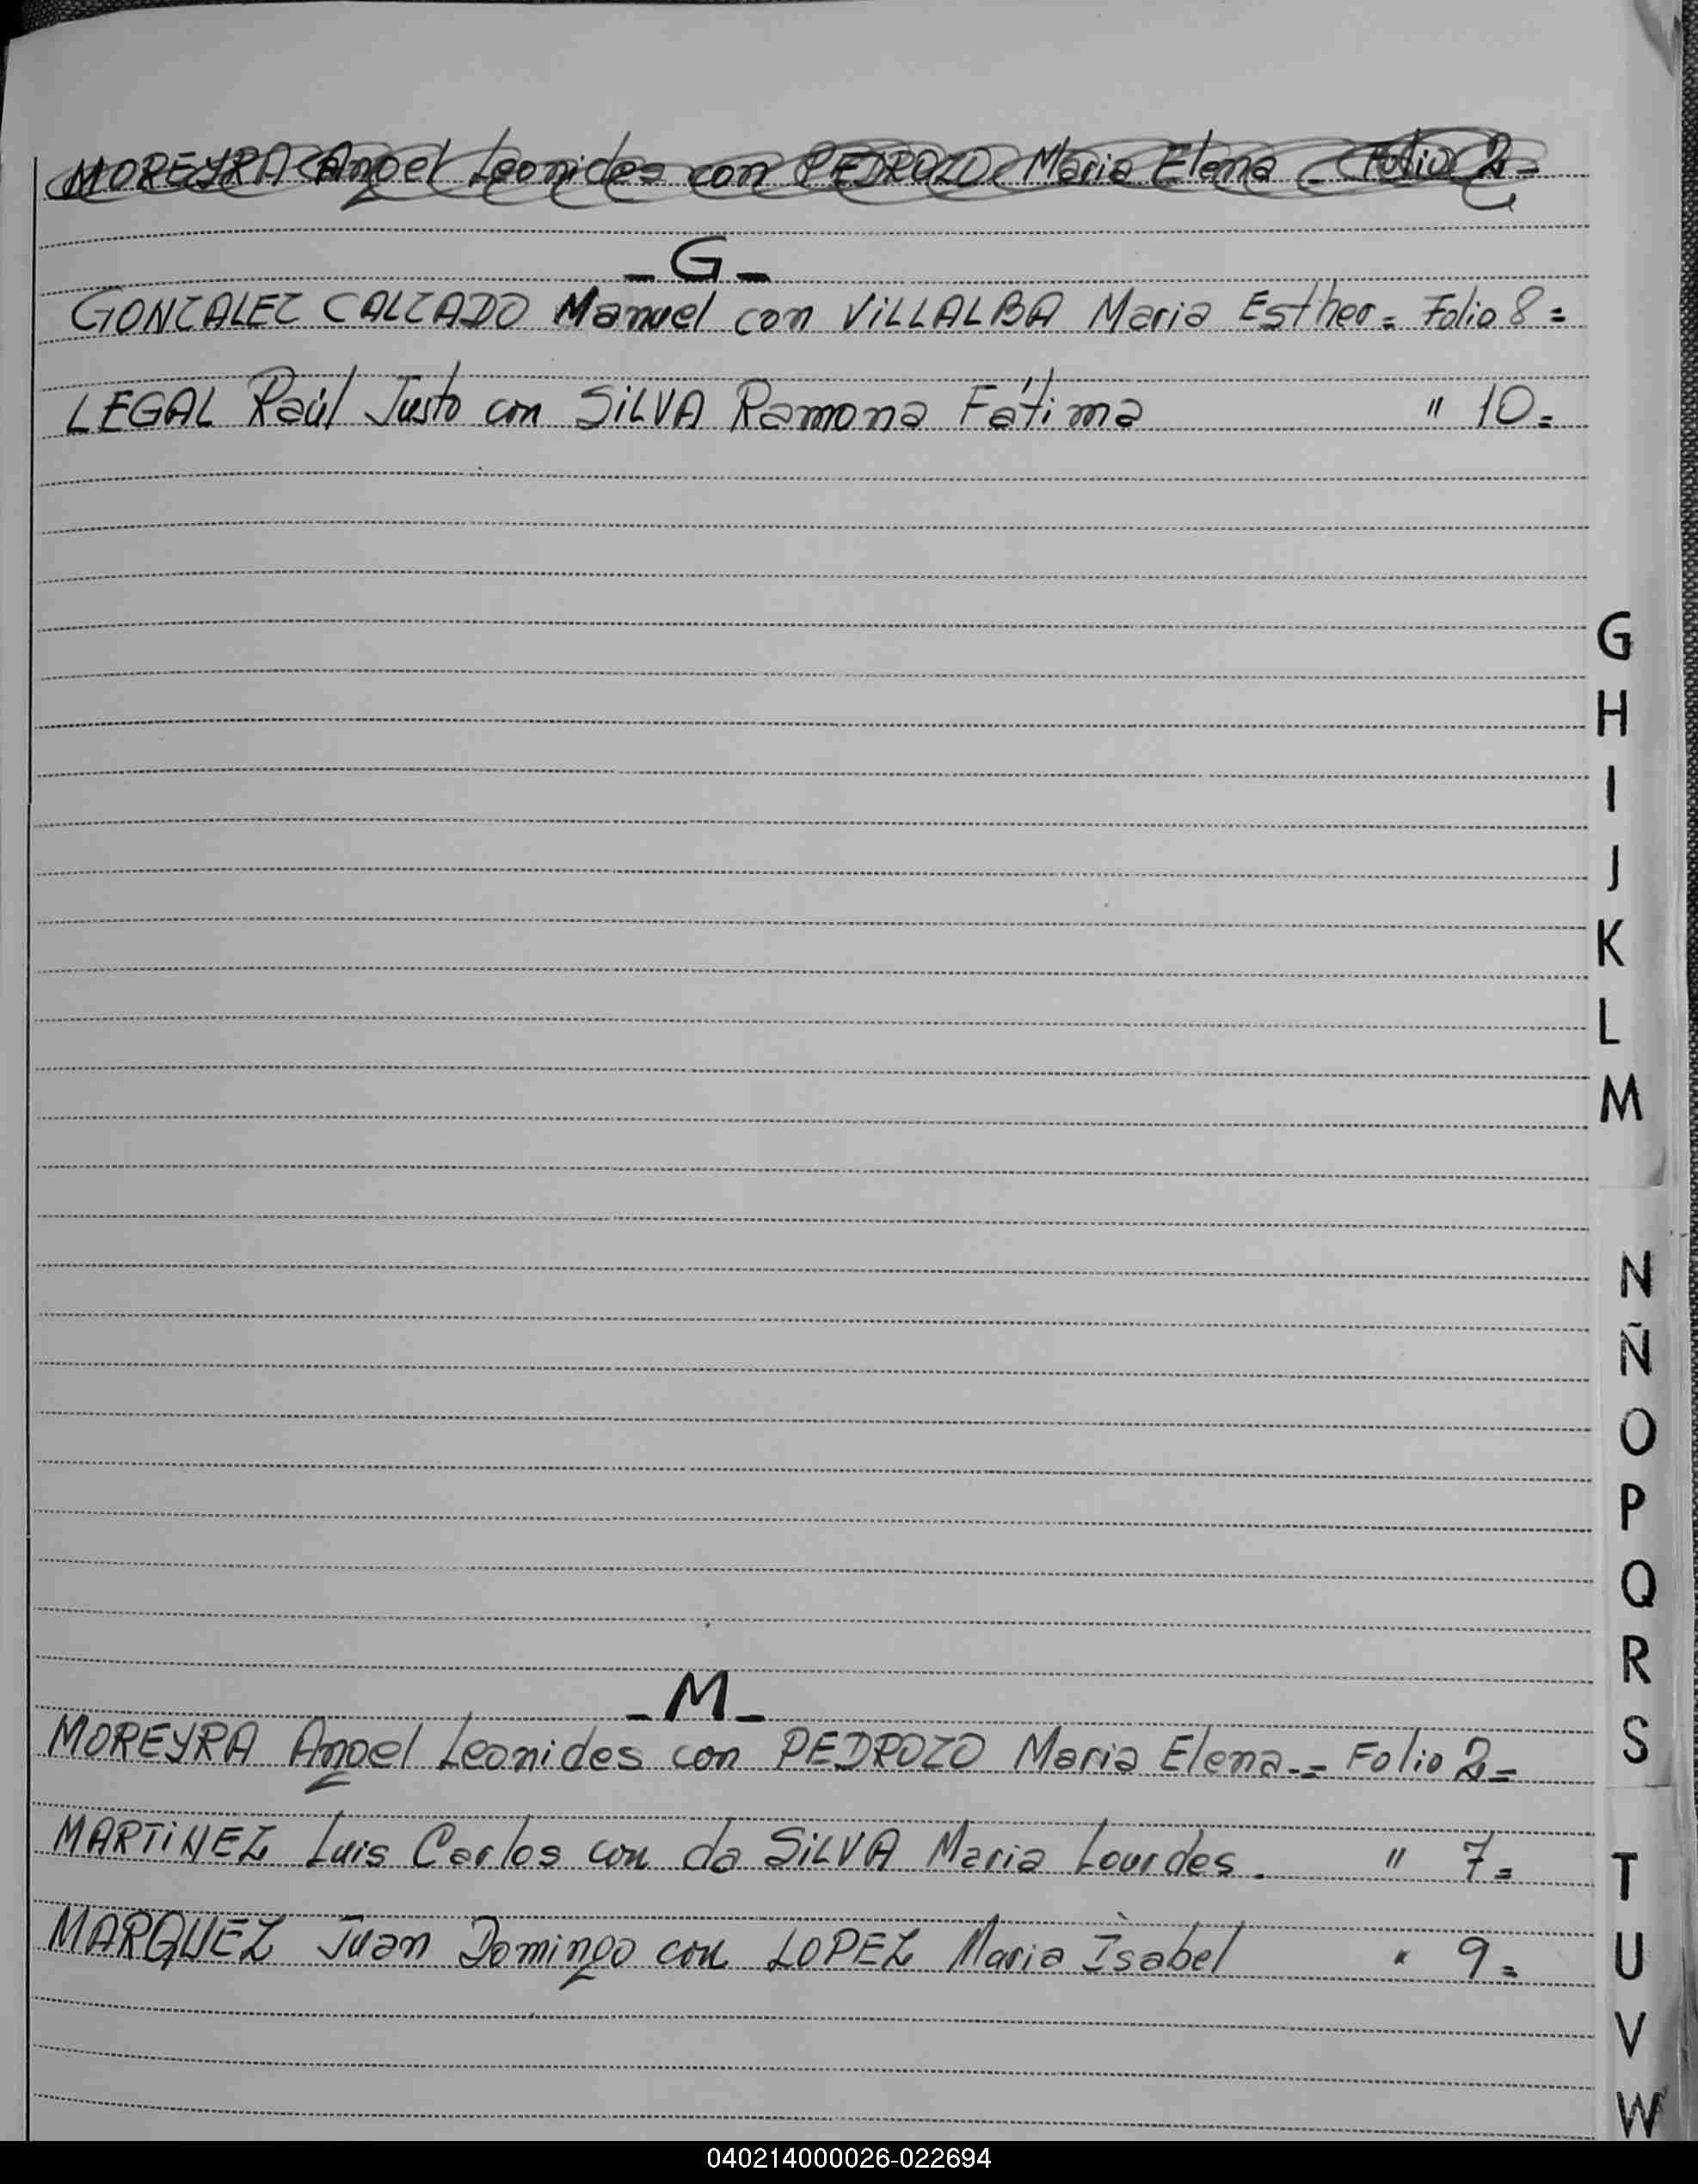 MOREYRA Angel Leonides con PEDROZO Maria Elena - Folio 2=
- G -
GONZALEZ CALZADO Manuel con VILLALBA Maria Esther = Folio 8 =
LEGAL Raúl Justo con SILVA Ramona Fátima " 10 =
- M -
MOREYRA Angel Leonides con PEDROZO Maria Elena -= Folio 2 =
MARTINEZ Luis Carlos con da SILVA Maria Lourdes. " 7 =
MARQUEZ Juan Domingo con LOPEZ Maria Isabel " 9 =
G
H
I
J
K
L
M
N
Ñ
O
P
Q
R
S
T
U
V
W
040214000026-022694